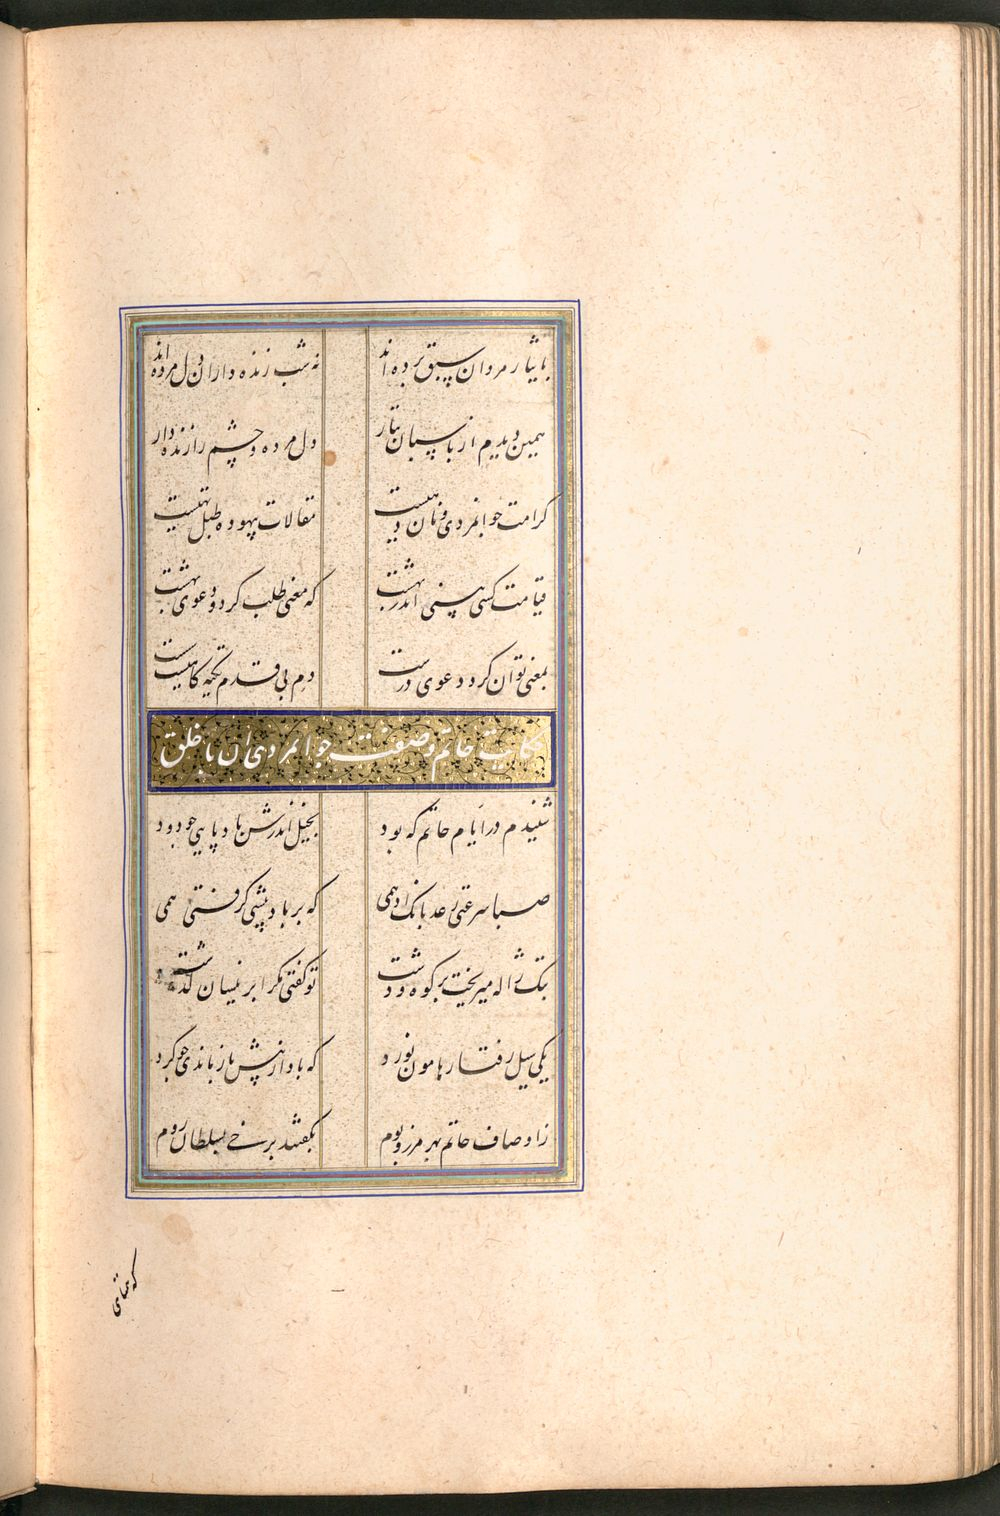 بایثار مردان سبق برده اند نه شب زنده داران دل مرده اند
همین دیدم از پاسبان تتار دل مرده و چشم زنده دار
کرامت جوانمردی و نان دهیست مقالات بیهوده طبل تهیست
قیامت کسی بینی اندر بهشت که معنی طلب کرد و دعوی بهشت
بمعنی توان کرد دعوی درست دم بی قدم تکیه کاهیست سست
حکایت حاتم و صفت جوانمردی ان با خلق
شنیدم در ایام حاتم که بود بخیل اندرش بادپایی جو دود
صبا سرعتی رعد بانک ادهمی که بر باد پیشی کرفتی همی
بتک ژاله میریخت بر کوه و دشت تو کفتی مکر ابر نیسان کذشت
یکی سیل رفتار هامون نورد که باد از پیش باز ماندی جو کرد
ز اوصاف حاتم بهر مرز و بوم بکفتند برخی بسلطان روم
که همتای